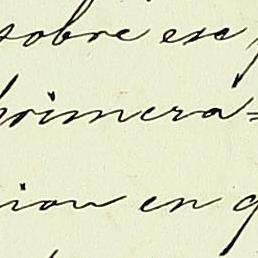 sobre ese
primera=
ion en q